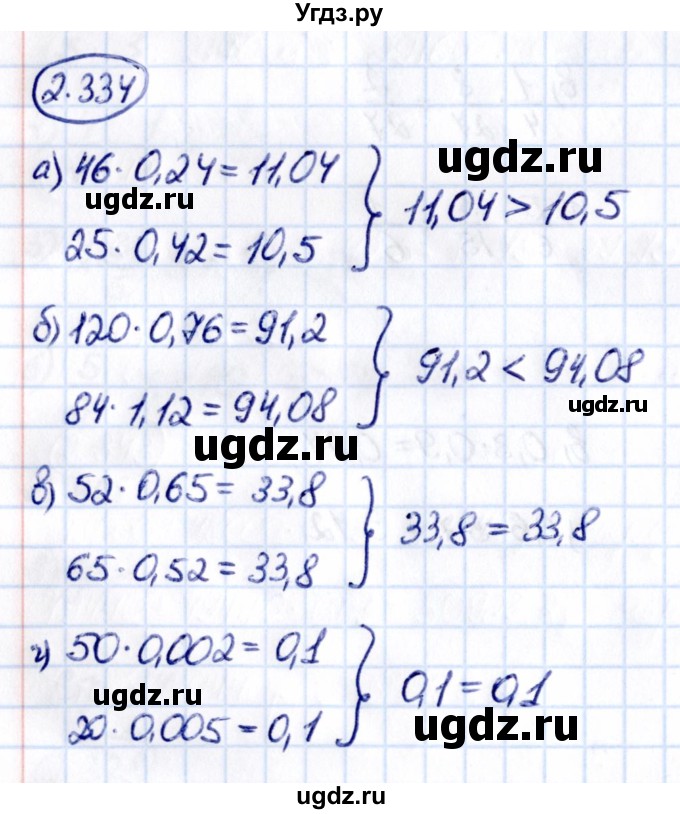 Угдз.ру
2.334
а) 46·0,24=11,04
25·0,42=10,5
11,04>10,5
ugdz.ru
ugdz.ru
б) 120·0,76=91,2
84·1,12=94,08
91,2<94,08
ugdz.ru
ugdz.ru
в) 52·0,65=33,8
65·0,52=33,8
33,8=33,8
г) 50·0,002=0,1
20·0,005=0,1
0,1=0,1
ugdz.ru
ugdz.ru
ugdz.ru